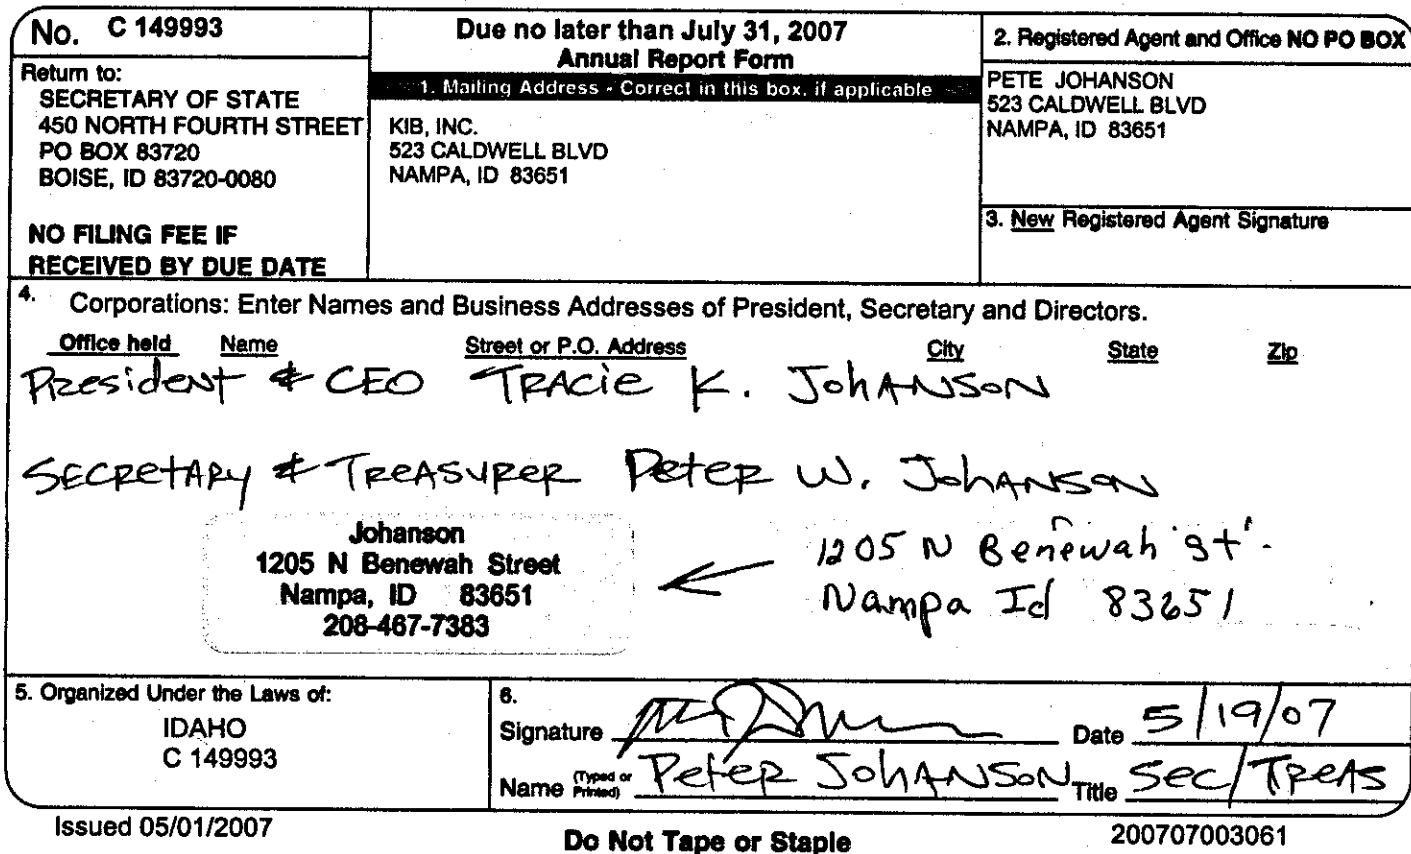 No. C 149993
Return to:
SECRETARY OF STATE
450 NORTH FOURTH STREET
PO BOX 83720
BOISE, ID 83720-0080
NO FILING FEE IF
RECEIVED BY DUE DATE
Due no later than July 31, 2007
Annual Report Form
1. Mailing Address - Correct in this box, if applicable
KIB, INC.
523 CALDWELL BLVD
NAMPA, ID 83651
2. Registered Agent and Office NO PO BOX
PETE JOHANSON
523 CALDWELL BLVD
NAMPA, ID 83651
3. New Registered Agent Signature
4. Corporations: Enter Names and Business Addresses of President, Secretary and Directors.
Office held Name Street or P.O. Address City State Zip
President & CEO TRAcie K. JohANSON
SECRetARy & TReASURER PeteR W. JohANSON
Johanson
1205 N Benewah Street
Nampa, ID 83651
208-467-7383
1205 N Benewah st.
Nampa Id 83651
5. Organized Under the Laws of:
IDAHO
C 149993
6.
Signature Date 5/19/07
Name (Typed or Printed) PeteR JohANSON Title Sec/TReAS
Issued 05/01/2007
Do Not Tape or Staple
200707003061